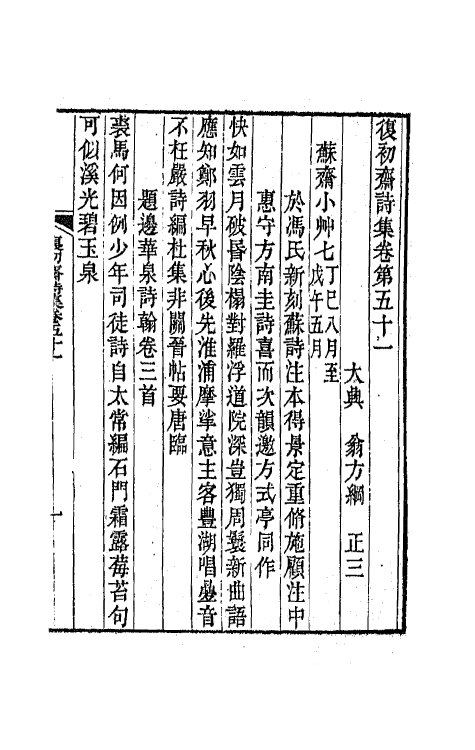 復初齋詩集卷第五十一
大典　翁方綱　正三
蘇齋小艸七丁巳八月至
戊午五月
於馮氏新刻蘇詩注本得景定重脩施顧注中
惠守方南圭詩喜而次韻邀方式亭同作
快如雲月破昏陰榻對羅浮道院深豈獨周髮新曲語
應知鄭羽早秋心後先淮浦摩挲意主客豐湖唱疊音
不枉嚴詩編杜集非關晉帖要唐臨
題邊華泉詩翰卷三首
裘馬何因例少年司徒詩自太常編石門霜露莓苔句
可似溪光碧玉泉
復初齋詩集卷五十一
一